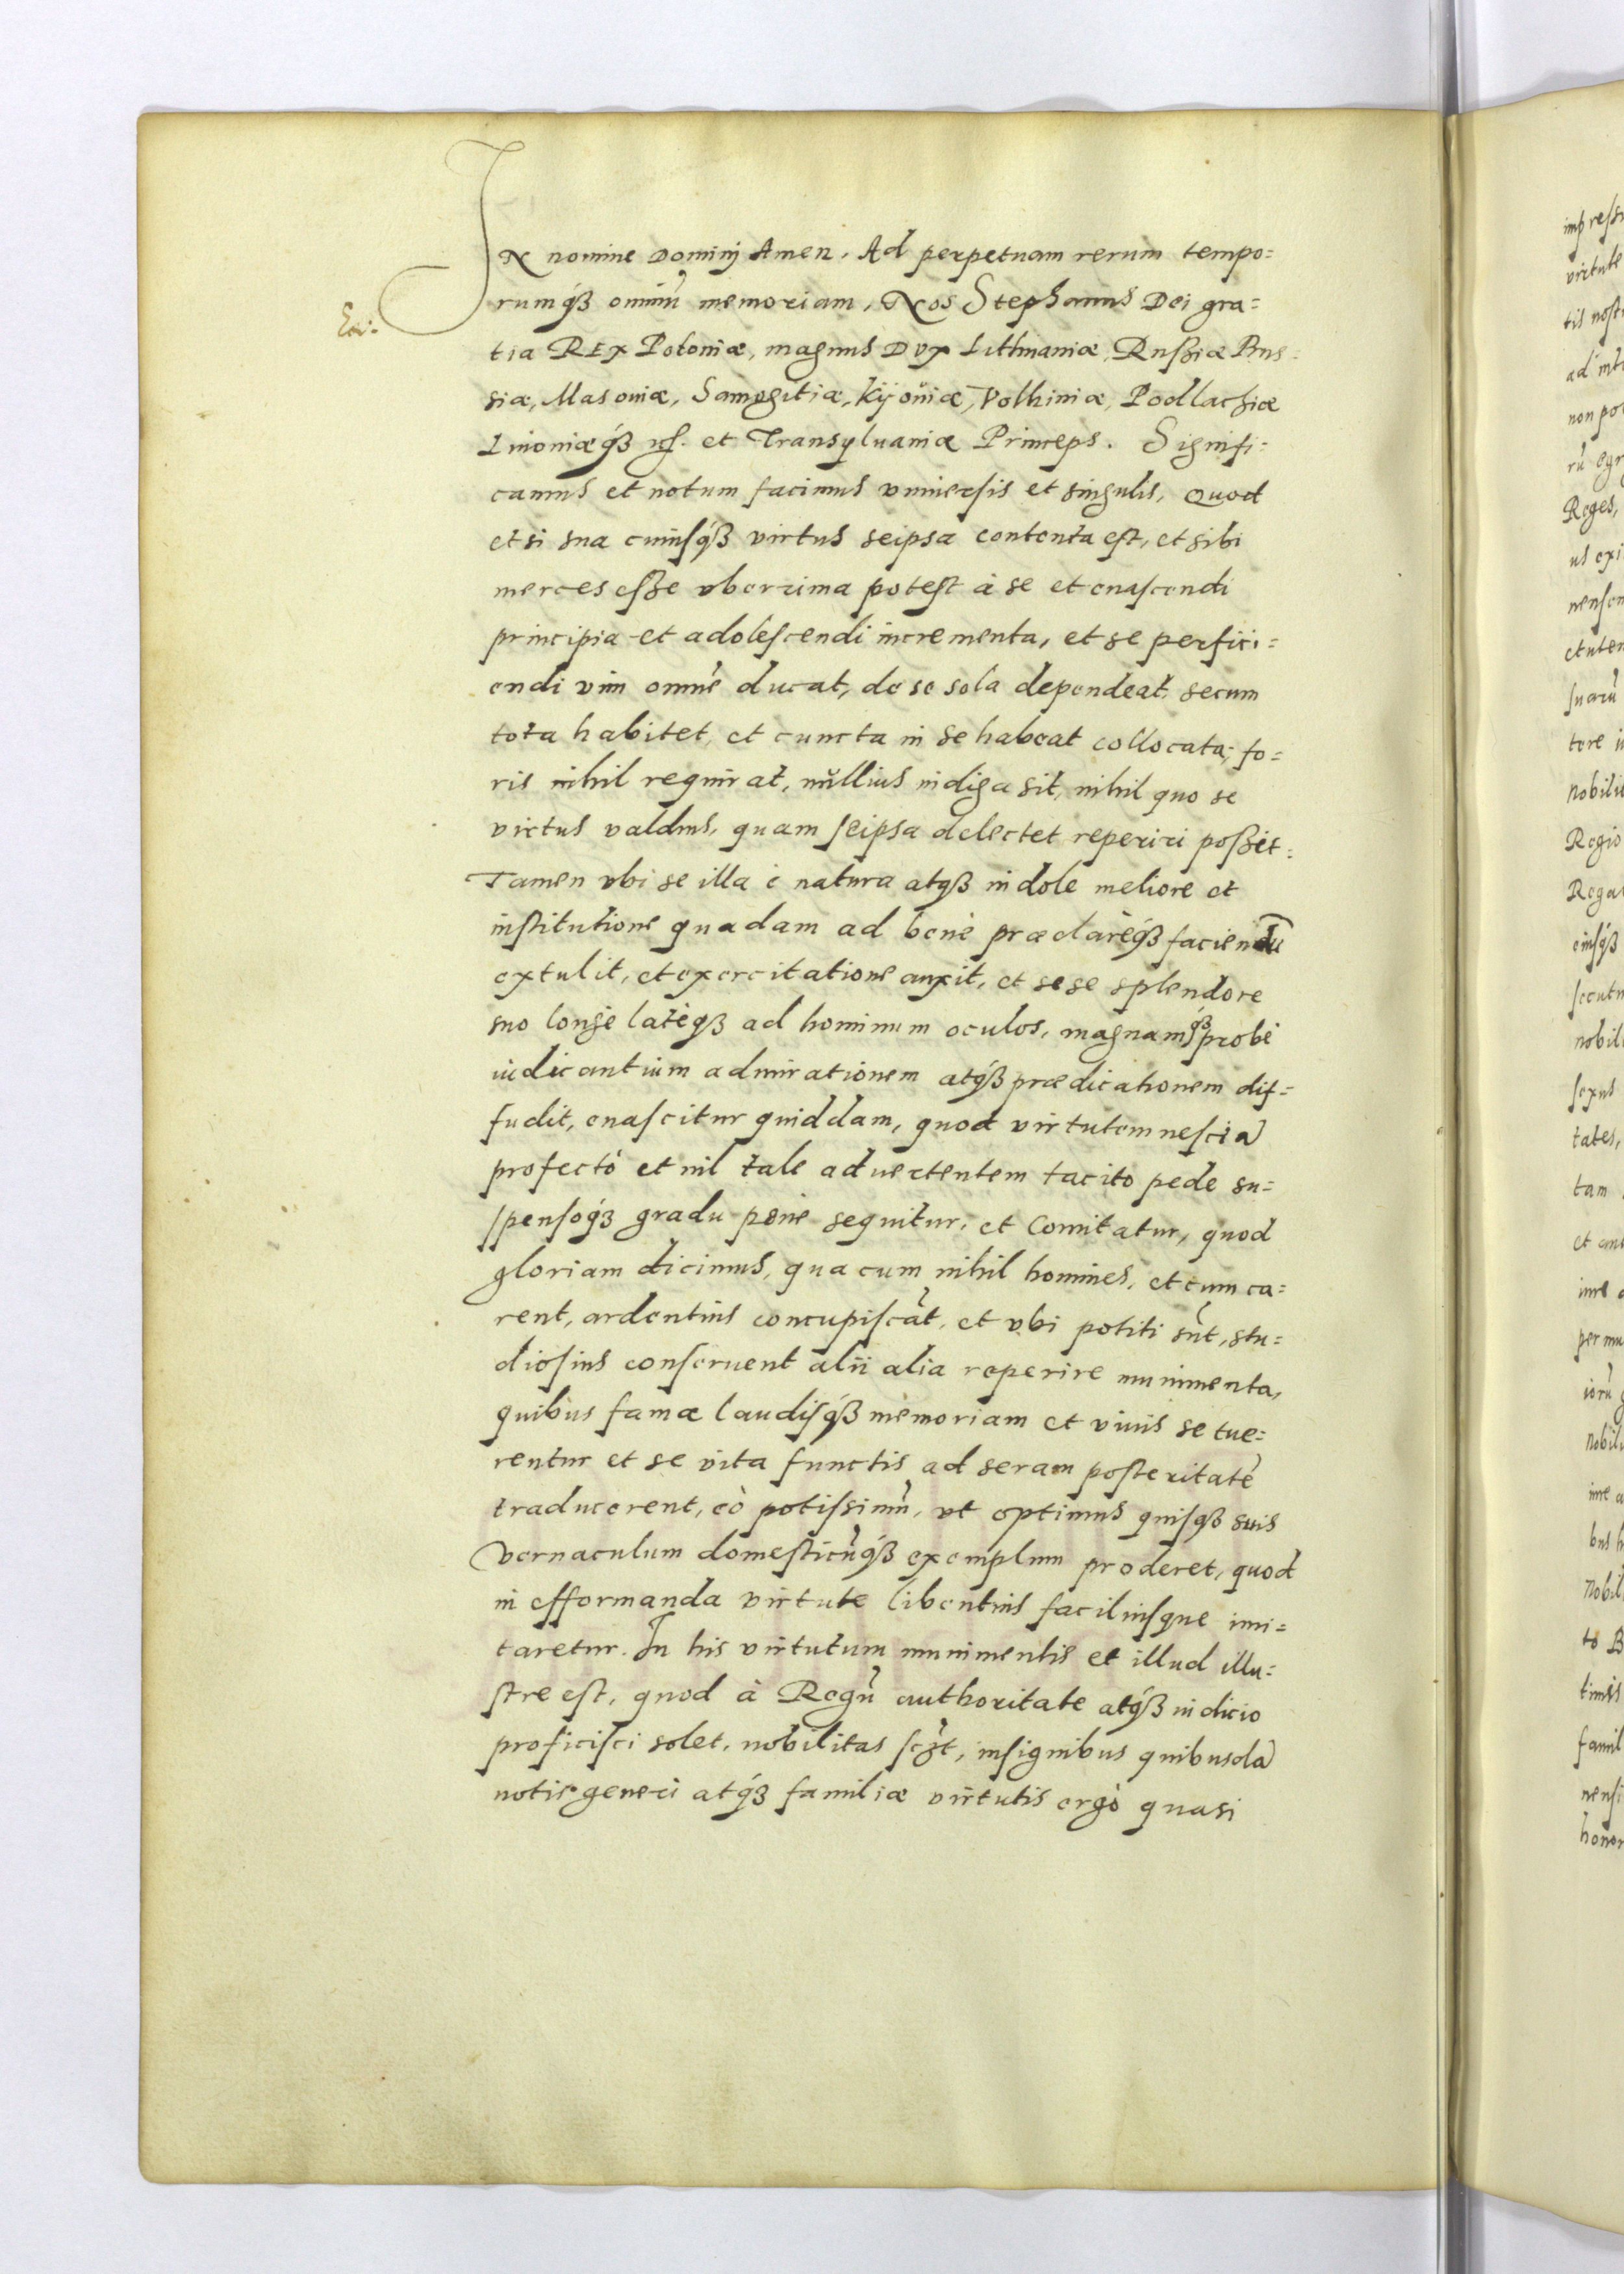 IN nomine Dominj Amen. Ad perpetuam rerum tempo=
rumq́ꝫ omniũ memoriam, Nos Stephanus Dei gra=
tia REX Poloniæ, magnus DVX Lithuaniæ, Rußiæ Prus=
siæ, Masouiæ, Samogitiæ, Kijouiæ, Volhiniæ, Podlachiæ
Liuoniæq́ꝫ et Transyluaniæ Princeps. Signifi=
camus et notum facimus vniuersis et singulis, Quod
etsi sua cuiusq́ꝫ virtus seipsa contenta est, et sibi
merces eße vberrima potest à se et enascendi
principia et adolescendi incrementa, et se perfici=
endi vim omnẽ ducat, de se sola dependeat, secum
tota habitet, et cuncta in se habeat collocata, fo=
ris nihil requirat, nullius indiga sit, nihil quo se
virtus validius, quam seipsa delectet reperiri poßit:
Tamen vbi se illa è natura atqꝫ indole meliore et
institutione quadam ad bene præclarèq́ꝫ faciendũ
extulit, et exercitatione auxit, et sese splendore
suo longè latèqꝫ ad hominum oculos, magnamqꝫ probè
iudicantium admirationem atq́ꝫ prædicationem dif=
fudit, enascitur quiddam, quod virtutem nesciã
profectò et nil tale aduertentem tacito pede su=
spensoq́ꝫ gradu pone sequitur, et Comitatur, quod
gloriam dicimus, qua cum nihil homines, et cum ca=
rent, ardentius concupiscãt, et vbi potiti sũt, stu=
diosius conseruent alii alia reperire munimenta,
quibus famæ laudisq́ꝫ memoriam et viuis se tue=
rentur et se vita functis ad seram posteritatẽ
traducerent, eò potissimũ, vt optimus quisqꝫ suis
vernaculum domesticũq́ꝫ exemplum proderet, quod
in efformanda virtute libentius faciliusque imi=
taretur. In his virtutum munimentis et illud illu=
stre est, quod à Regũ authoritate atq́ꝫ iudicio
proficisci solet, nobilitas scꝫt, insignibus quibusdã
notis generi atq́ꝫ familiæ virtutis ergò quasi